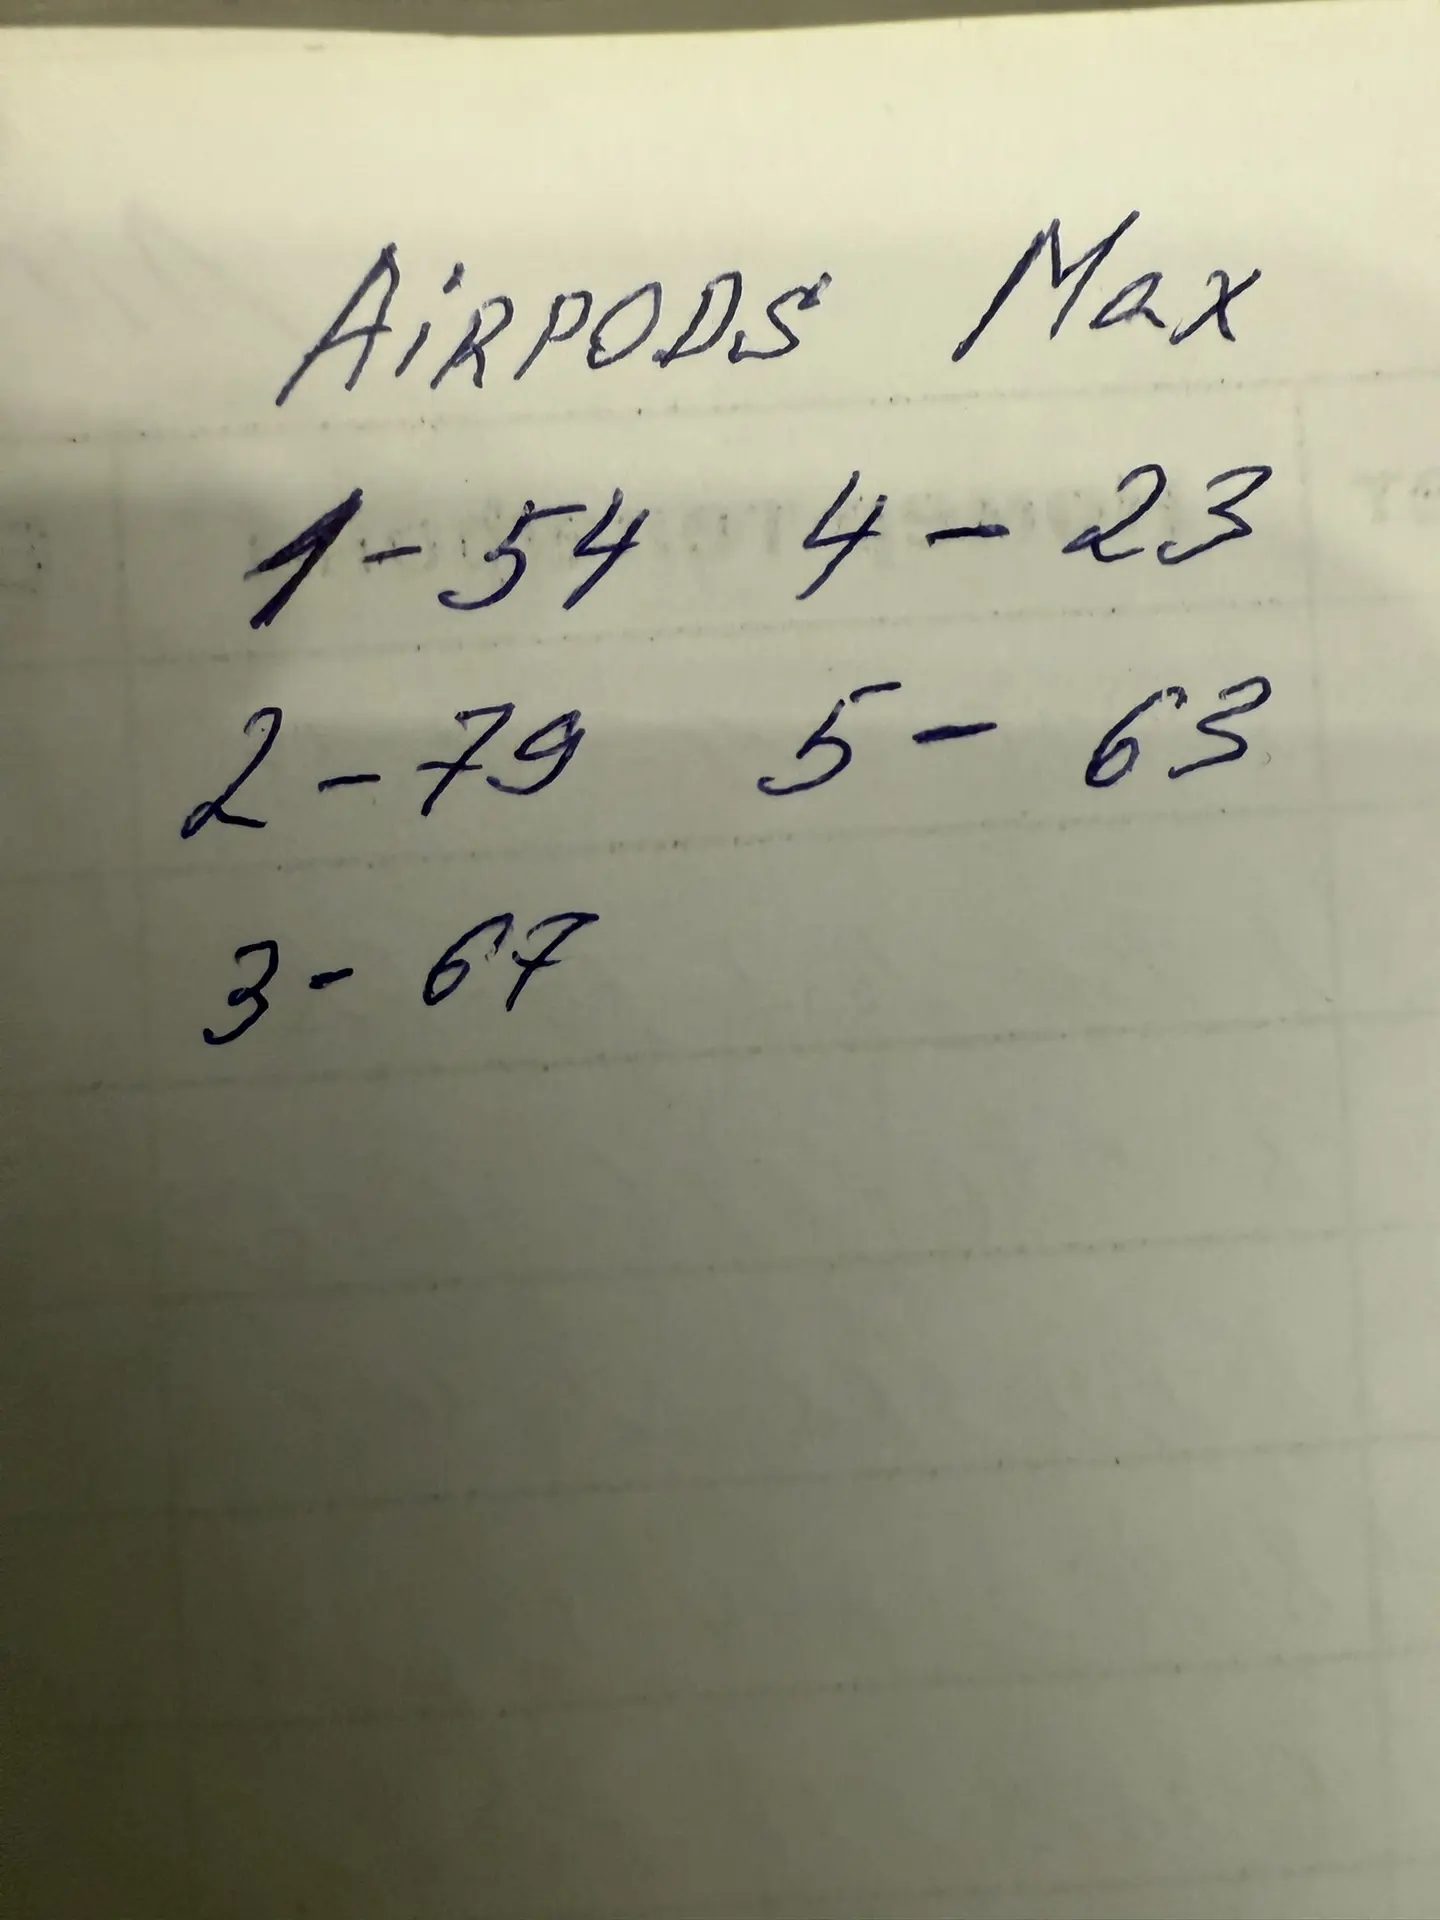 AiRPODS Max
1 - 54 4 - 23
2 - 79 5 - 63
3 - 67